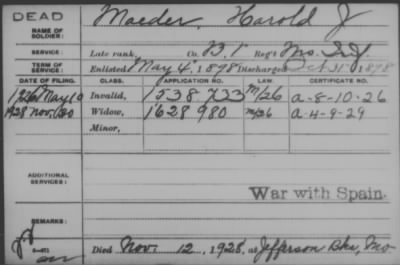 DEAD
NAME OF SOLDIER: Maeder, Harold J
SERVICE: Late rank, Co. B. 1 Reg't Mo. Inf.
TERM OF SERVICE: Enlisted May 4, 1898 Discharged Oct 31, 1898
DATE OF FILING. CLASS. APPLICATION NO. LAW. CERTIFICATE NO.
1926 May 10 Invalid, 1538733 M/26 a-8-10-26
1928 Nov. 30 Widow, 1628980 M/26 a-4-9-29
Minor,
ADDITIONAL SERVICES:
War with Spain.
REMARKS:
Died Nov. 12, 1928, at Jefferson Bks, Mo